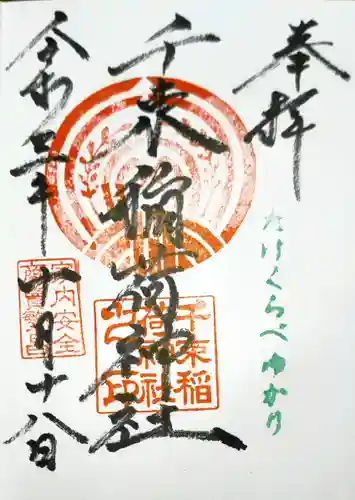 奉拝
たけくらべゆかり
千束稲荷神社
千束稲
荷神社
家内安全
商買繁昌
令和三年十月十八日